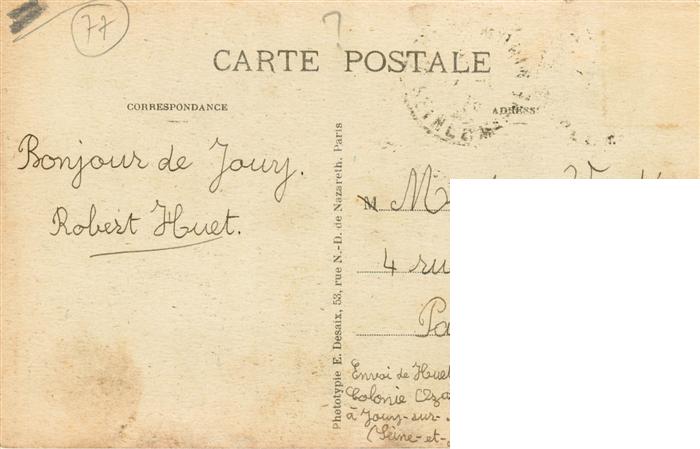 77
?
CARTE POSTALE
CORRESPONDANCE
Bonjour de Jouy.
Robert Huet.
Phototypie E. Desaix, 53, rue N.-D. de Nazareth. Paris
M
4
Envoi de Huet
Colonie
à Jouy-sur-
(Seine-et-